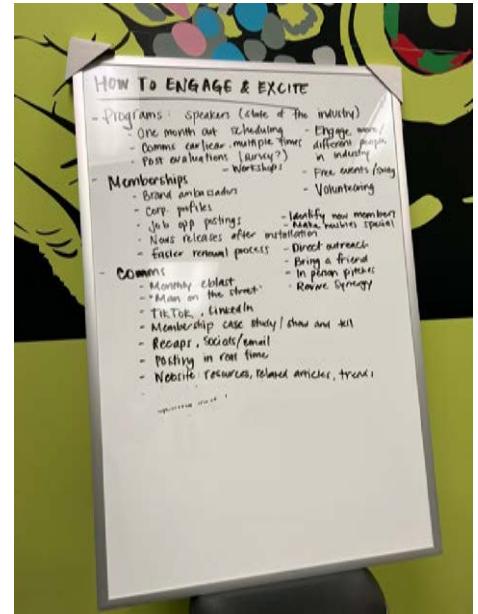 HOW TO ENGAGE & EXCITE
- Programs: speakers (state of the industry)
- One month out scheduling
- Comms earlier, multiple times
- Post evaluations (survey?)
- Workshops
- Engage more/
different people
in industry
- Free events/swag
- Volunteering
- Memberships
- Brand ambassadors
- Corp. profiles
- Job opp postings
- News releases after installation
- Easier renewal process
- Identify new members
- Make newbies special
- Direct outreach
- Bring a friend
- In person pitches
- Revive Synergy
- Comms
- Monthly eblast
- "Man on the street"
- TikTok, LinkedIn
- Membership case study/show and tell
- Recaps, socials/email
- Posting in real time
- Website: resources, related articles, trends